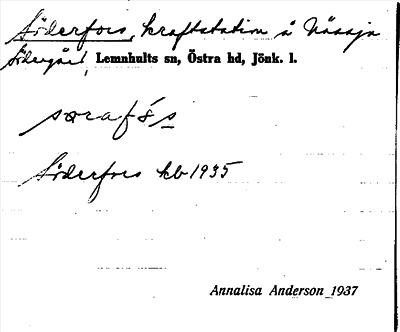 Söderfors, kraftstation å Nässja
Södergård, Lemnhults sn, Östra hd, Jönk. l.
særafós
Söderfors kb 1935
Annalisa Anderson 1937